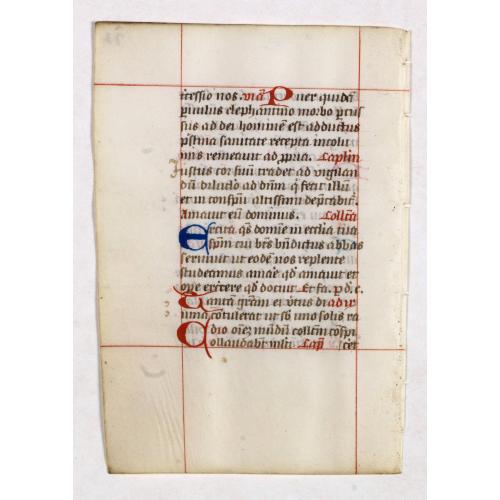 tcessio nos. vīa Puer quidā
p̄mulus elephantino morbo p̄cus
sus ad dei hominē est adductus
p̄stina sanitate recepta incolu
mis remeavit ad p̄pria. Cap̄lm
Iustus cor suū tradet ad vigilan
dū diluclo ad dūm q̄ fecit illū
et in conspū altissimi dep̄cabit᷑.
Amavit eū dominus. Collcā
Excita q̄s domīe in ecclīa tua
sp̄m cui bt̄s bn̄dictus abbas
servivit ut eodē nos replente
studeamus amāe qd̄ amavit et
ope exercere qd̄ docuit. Et fa. p̄ d. c.
Tantā gr̄am et v̄tus di ad
nīa cōtulerat ut sb̄ uno solis ra
dio oēz mūdū collcm cōspi
Collaudabt mlti Cap̄ ceret